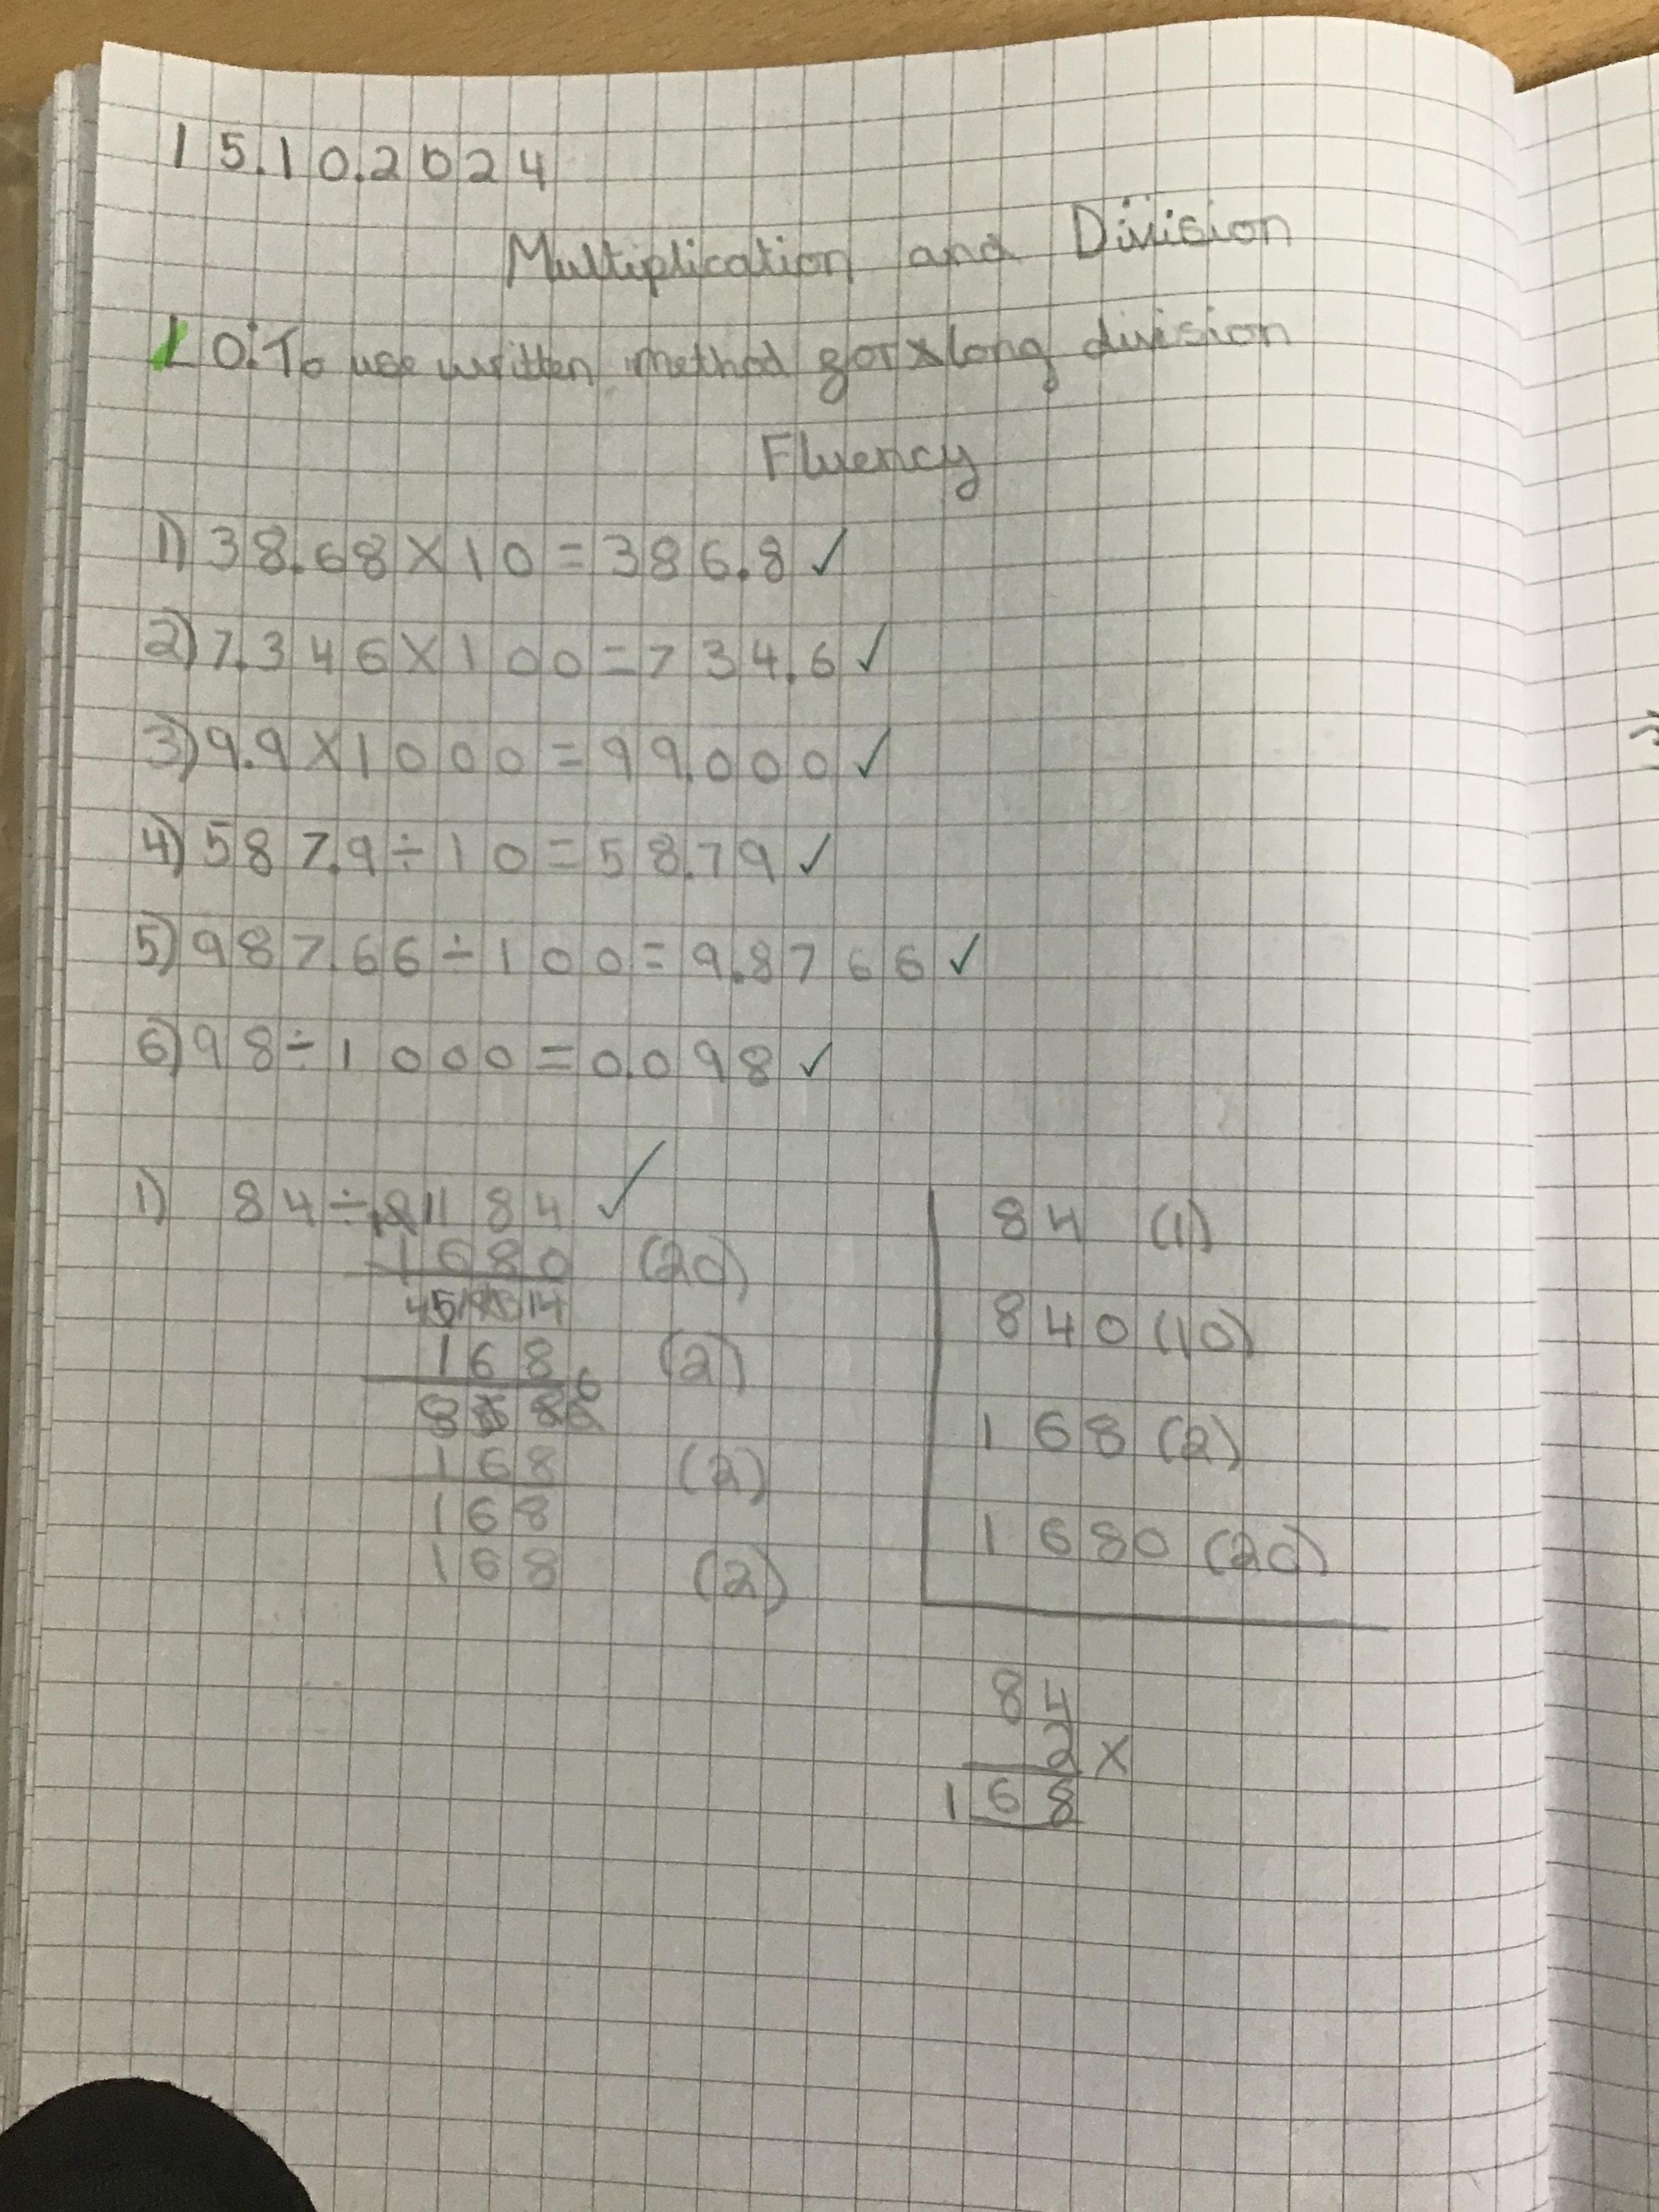 15.10.2024
Multiplication and Division
LO: To use written method for long division
Fluency
1) 38.68 × 10 = 386.8 ✓
2) 7.346 × 100 = 734.6 ✓
3) 9.9 × 1000 = 99.000 ✓
4) 587.9 ÷ 10 = 58.79 ✓
5) 987.66 ÷ 100 = 9.8766 ✓
6) 98 ÷ 1000 = 0.098 ✓
1) 84 ÷ 84 ✓
1680 (20)
168 (2)
168 (2)
168
168 (2)
84 (1)
840 (10)
168 (2)
1680 (20)
84
2 ×
168